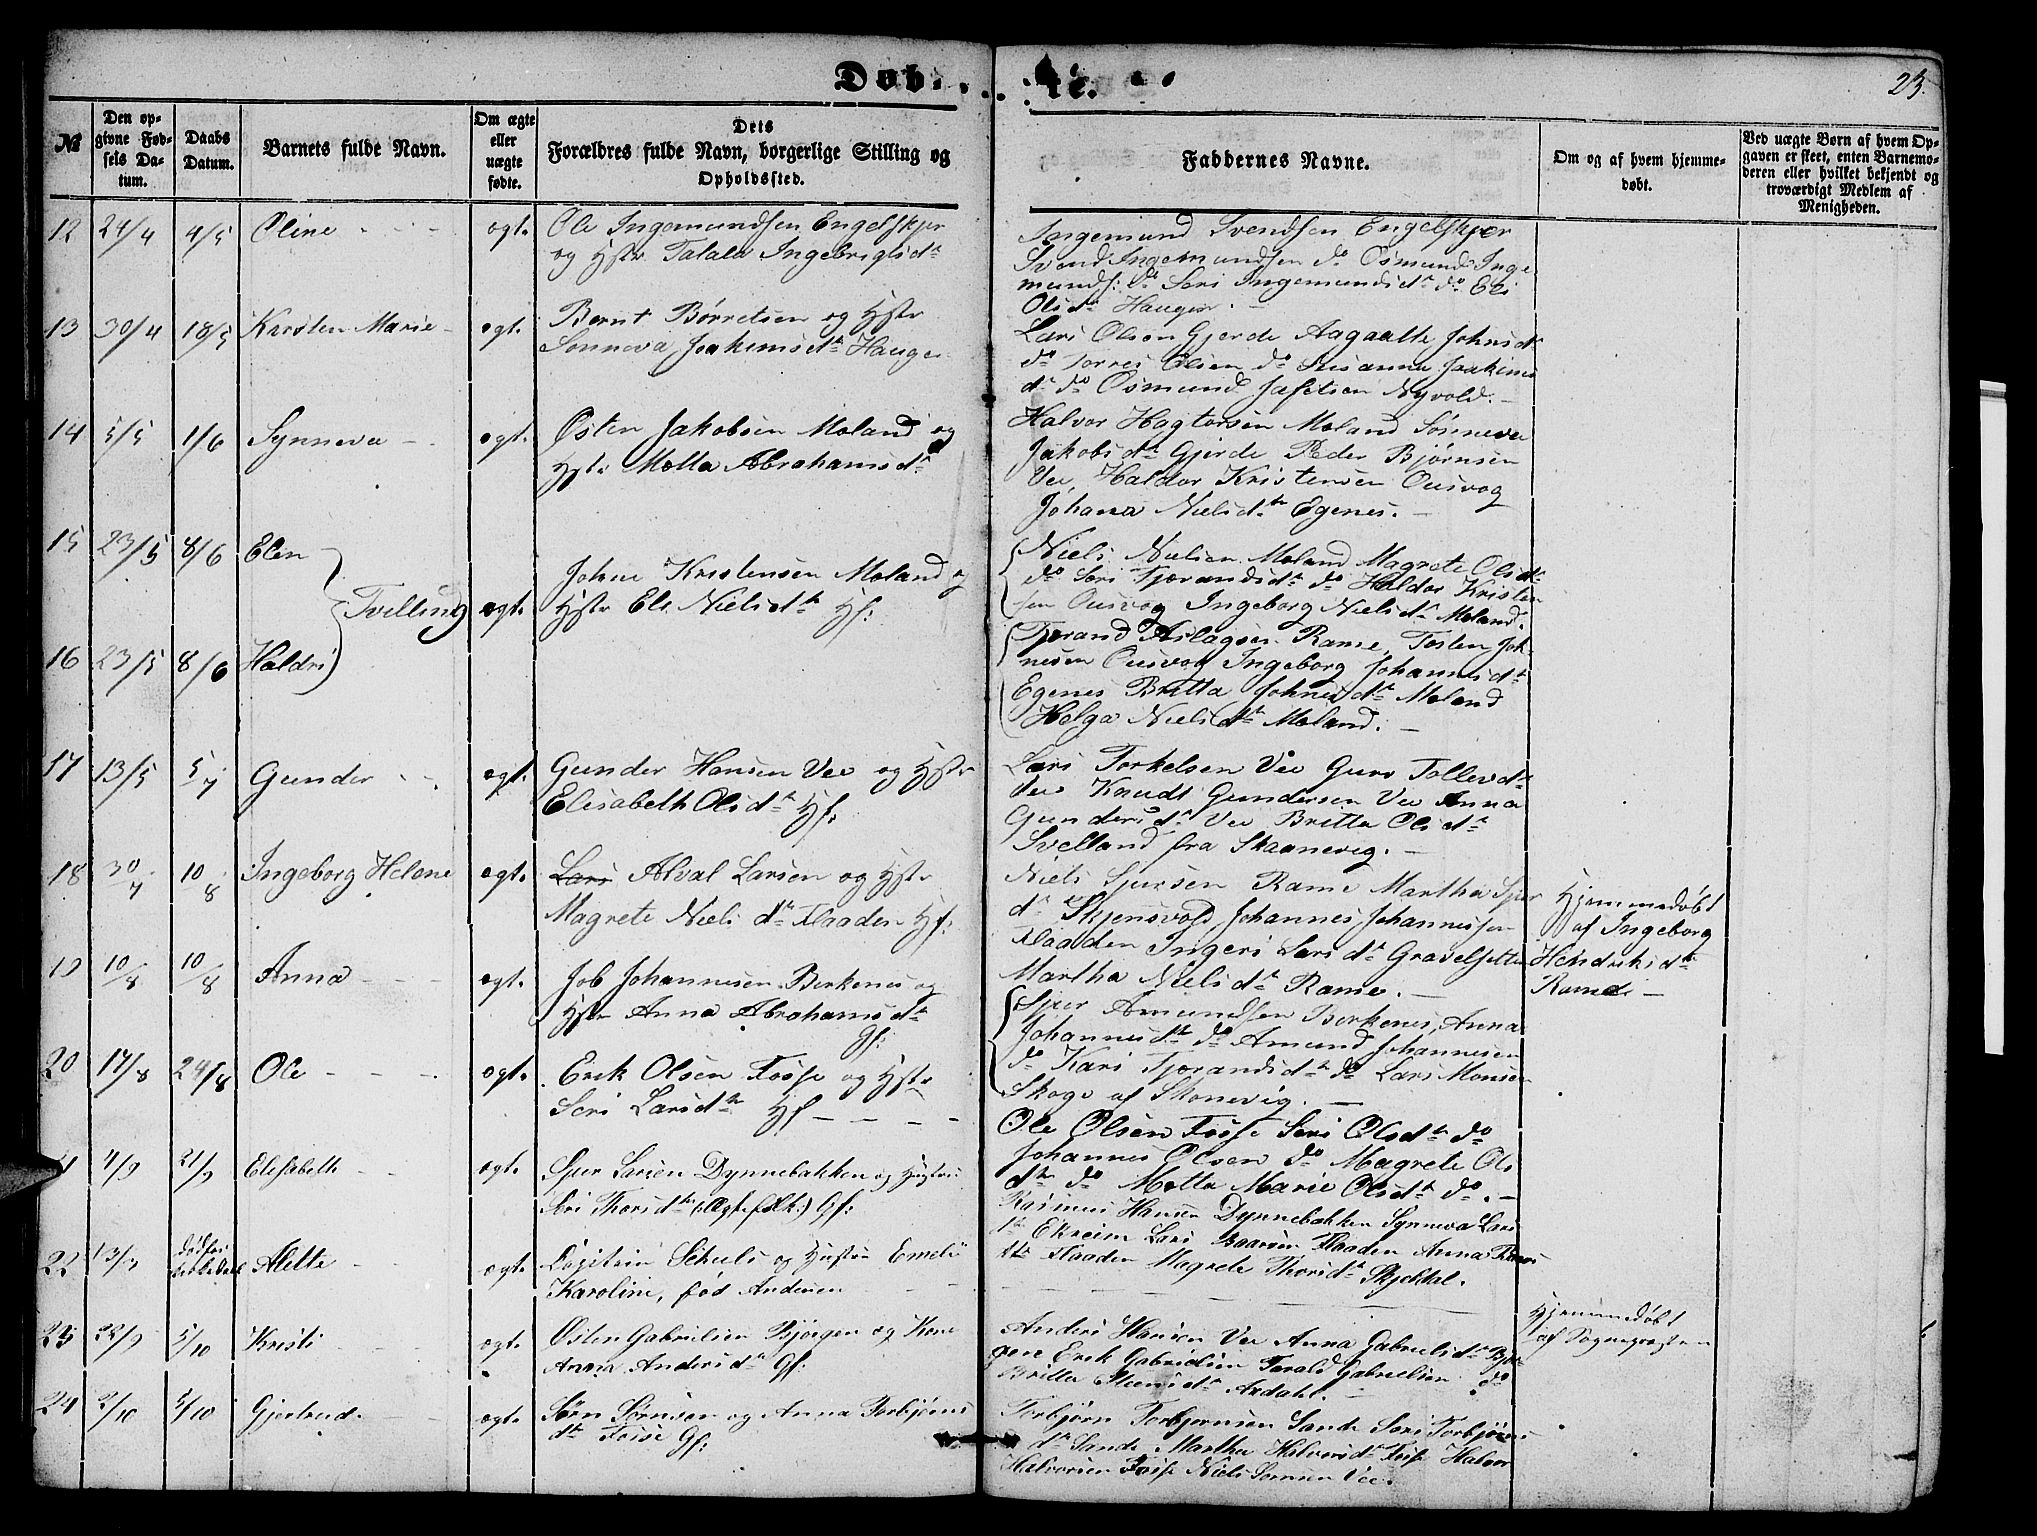 Døb
te.
23.
№
Den opgivne Fødsels Datum.
Daabs Datum.
Barnets fulde Navn.
Om ægte eller uægte fødte.
Dets Forældres fulde Navn, borgerlige Stilling og Opholdssted.
Faddernes Navne.
Om og af hvem hjemmedøbt.
Ved uægte Børn af hvem Opgaven er skeet, enten Barnemoderen eller hvilket bekjendt og troværdigt Medlem af Menigheden.
12 24/4 4/5 Oline ægt. Ole Ingemundsen Engelskjer
og Hstr Talala Ingebrigtsdtr
Ingemund Svendsen Engelskjær
Svend Ingemundsen do Osmund Inge
munds: do Seri Ingemundsdtr do Eli
Olsdtr Hauger.
13 30/4 18/5 Karsten Marie ægt. Bernt Børretsen og Hstr
Sønneva Joakimsdtr Hauge
Lars Olsen Gjerde Aagaatte Johnsdtr
do Torres Olsen do Susanna Joakims
dtr do Osmund Jafetsen Nyvold.
14 5/5 1/6 Synneva ægt. Østen Jakobsen Moland og
Hstr Motta Abrahamsdtr
Halvor Hagtorsen Moland Sønneva
Jakobsdtr Gjerde Peder Bjørnsen
Vee, Haldor Kristensen Ousvog
Johana Nielsdtr Egenes.
15 23/5 8/6 Elen
Tvilling ægt. Johne Kristensen Moland og
Hstr Eli Nielsdtr Hf:
Niels Nielsen Moland Magrete Olsdtr
do Seri Tjærandsdtr do Haldor Kristen
sen Ousvog Ingeborg Nielsdtr Moland.
16 23/5 8/6 Haldri
Tjerand Aslagsen Rame, Tosten Joh
nesen Ousvog Ingeborg Johannesdtr
Egenes Britta Johnesdtr Moland
Helga Nielsdtr Moland.
17 13/5 5/7 Gunder ægt. Gunder Hansen Vee og Hstr
Elisabeth Olsdtr Hf:
Lars Torkelsen Vee Guro Tollevsdtr
Vee Knudt Gundersen Vee Anna
Gundersdtr Vee Britta Olsdtr
Svelland fra Skaanevig.
18 30/7 10/8 Ingeborg Helene ægt. Lars Alval Larsen og Hstr
Magrete Nielsdtr Flaaden Hf:
Niels Sjursen Rame Martha Sjur
dtr Skjensvold, Johannes Johannessen
Flaaden Ingeri Larsdtr Gravelsetter
Martha Nielsdtr Rame.
Hjemmedøbt
af Ingeborg
Hendriksdtr
Rame
19 10/8 10/8 Anna ægt. Job Johannesen Berkenes og
Hstr Anna Abrahamsdtr
Gf:
Sjur Amundsen Berkenes, Anna
Johannesdtr do Amund Johannesen
do Kari Tjærandsdtr do Lars Monsen
Skoge af Skonevig.
20 17/8 24/8 Ole ægt. Erik Olsen Fosse og Hstr
Seri Larsdtr Hf
Ole Olsen Fosse Seri Olsdtr do
Johannes Olsen do Magrete Ols
dtr do Motta Marie Olsdtr do.
21 4/9 21/9 Elisabeth ægt. Sjur Larsen Dynnebakken og Hustru
Seri Thorsdtr (Ægtefolk) Gf:
Rasmus Hansen Dynnebakken Synneva Lars
dtr Ekreim Lars Baarsen Flaaden Anna
Flaaden Magrete Thorsdtr Skjeldal.
22 13/9 Alette ægt. Schuls og Hustru Emeli
Karoline, fød Andersen
23 22/9 5/10 Kristi ægt. Østen Gabrielsen Bjørgen og Kone
Anna Andersdtr Gf.
Anders Hansen Vee Anna Gabrielsdtr Bjør
gene Erik Gabrielsen Torald Gabrielsen do
Britta Steensdtr Aadahl.
Hjemmedøbt
af Sogneprest
24 2/10 5/10 Gjertrud. ægt. Sørn Sørnsen og Anna Torbjørns
dtr Fosse Gf:
Torbjørn Torbjørnsen Sande Seri Torbjørns
dtr Sande Martha Halvorsdtr Fosse Halvor
Halvorsen Fosse Niels Sørnsen Vee.